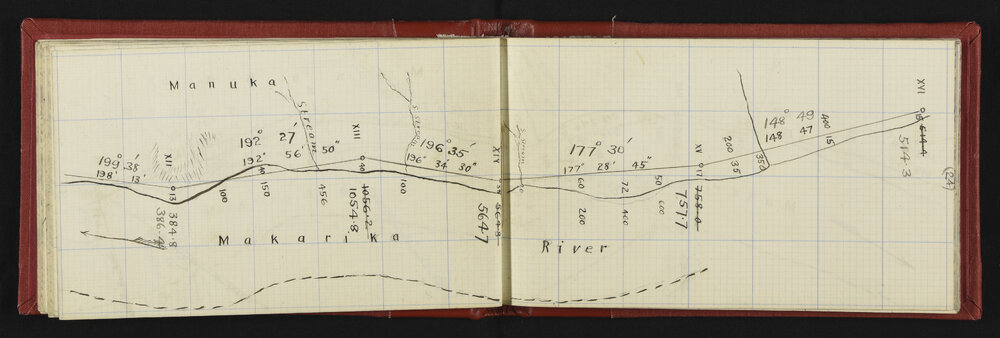 Manuka
Stream
S. Stream
XII
199° 38'
198' 13'
13
384.8
100
192° 27'
192' 56' 50"
40
150
456
XIII
40
1056.2
1054.8
100
196° 35'
196° 34 30"
XIV
564.8
564.7
177° 30'
177° 28' 45"
60
200
72
400
50
600
XV
17
758.0
757.7
200
35
350
148° 49
148 47
400
15
XVI
15
514.4
514.3
(24)
Makarika River